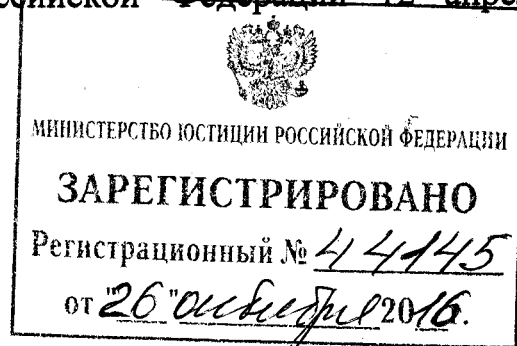 Федерации 12 апре
МИНИСТЕРСТВО ЮСТИЦИИ РОССИЙСКОЙ ФЕДЕРАЦИИ
ЗАРЕГИСТРИРОВАНО
Регистрационный № 44145
от "26" октября 2016.